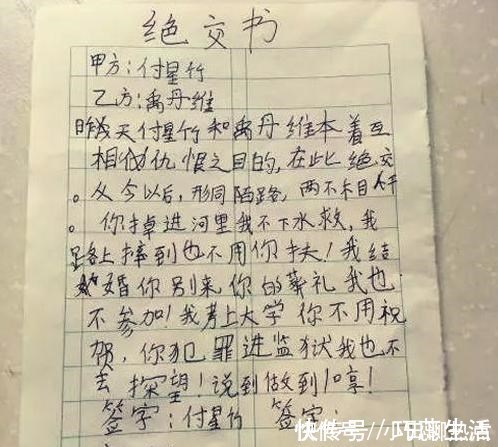 绝交书
甲方：付星竹
乙方：禹丹维
昨天付星竹和禹丹维本着互
相仇恨之目的，在此绝交
。从今以后，形同陌路，两不相干
。你掉进河里我不下水救，我
路上摔到也不用你扶！我结
婚你别来你的葬礼我也
不参加！我考上大学你不用祝
贺，你犯罪进监狱我也不
去探望！说到做到！哼！
签字：付星竹 签字：
快传号/
生活